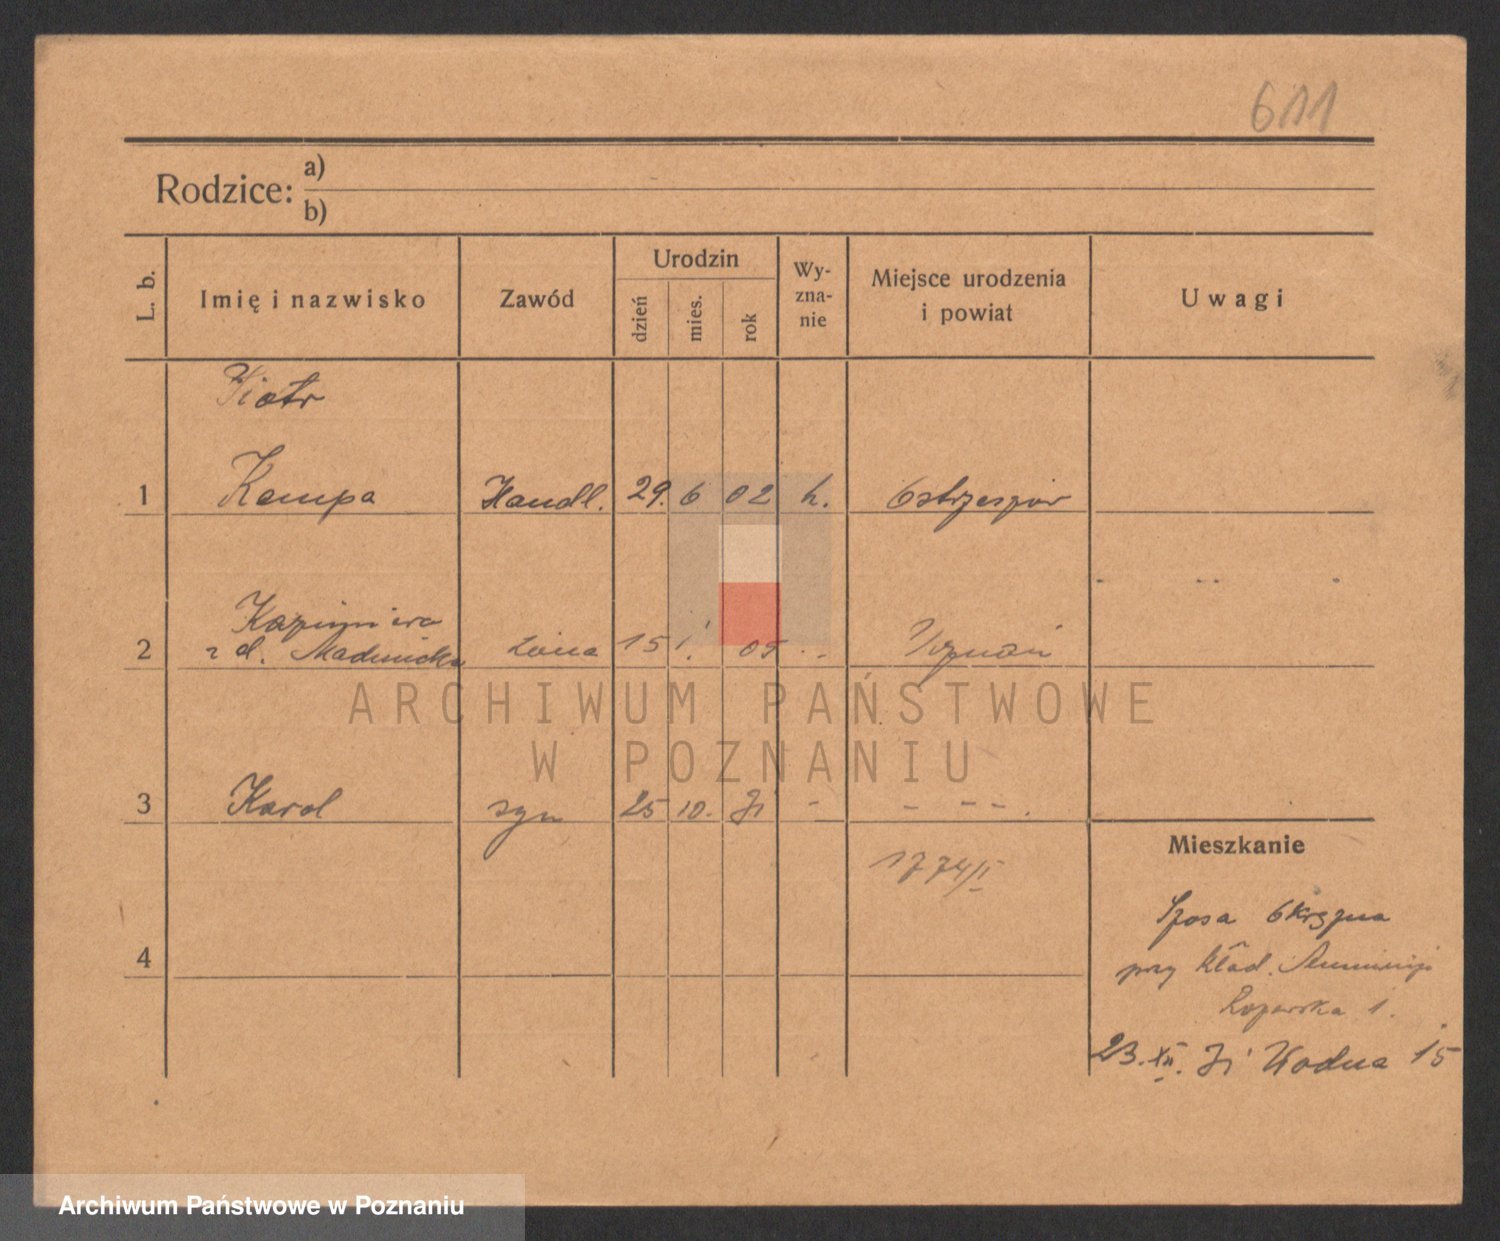 611
Rodzice: a)
b)
L. b.
Imię i nazwisko
Zawód
Urodzin
dzień
mies.
rok
Wy-
zna-
nie
Miejsce urodzenia
i powiat
Uwagi
Piotr
1 Kempa Handl. 29. 6 02 k. Ostrzeszów
Kazimiera
2 z d. żona 15 1. 05 Poznań
3 Karol syn 25 10. 31
1774/I
4
Mieszkanie
Szosa Okrężna
przy kład.
1.
23. XII. 31 Wodna 15
ARCHIWUM PAŃSTWOWE
W POZNANIU
Archiwum Państwowe w Poznaniu